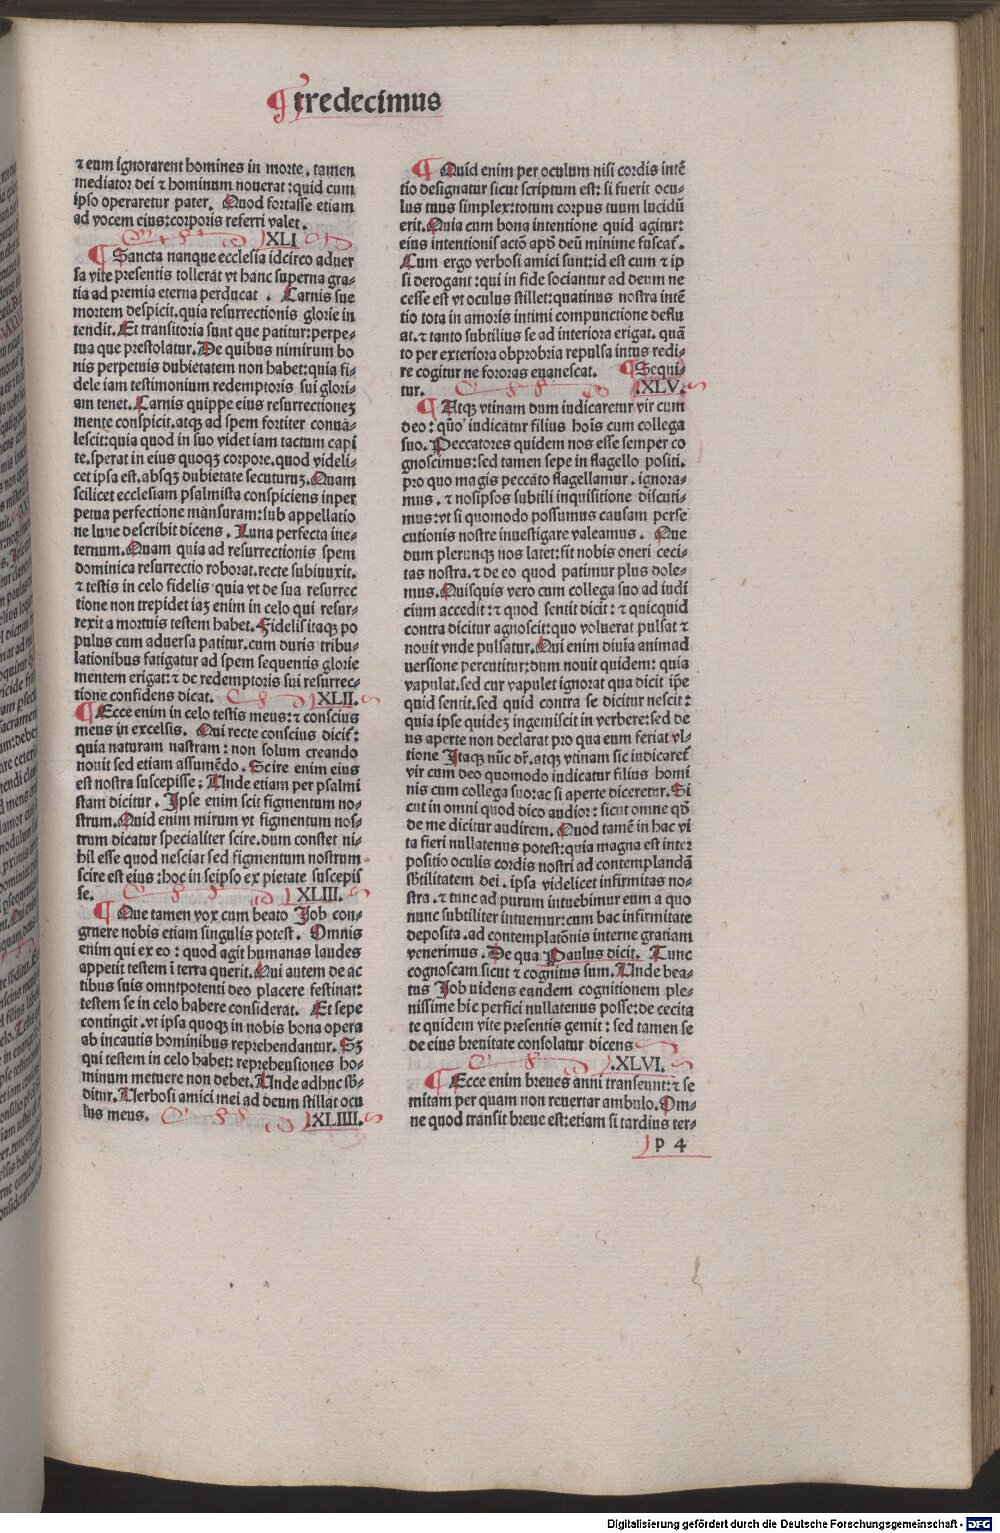 tredecimus
⁊ eum ignorarent homines in morte . tamen
mediator dei ⁊ hominum nouerat : quid cum
ipso operaretur pater . Quod fortasse etiam
ad vocem eius : corporis referri valet .
XLI
¶ Sancta nanque ecclesia idcirco aduer
sa vite presentis tollerat vt hanc superna gra-
tia ad premia eterna perducat . Carnis sue
mortem despicit . quia resurrectionis glorie in
tendit . Et transitoria sunt que patitur : perpe-
tua que prestolatur . De quibus nimirum bo
nis perpetuis dubietatem non habet : quia fi-
dele iam testimonium redemptoris sui glori-
am tenet . Carnis quippe eius resurrectioneꝫ
mente conspicit . atqꝫ ad spem fortiter conua-
lescit : quia quod in suo videt iam tactum capi
te . sperat in eius quoqꝫ corpore . quod videli-
cet ipsa est . absqꝫ dubietate secuturuꝫ . Quam
scilicet ecclesiam psalmista conspiciens in per
petua perfectione mansuram : sub appellatio
ne lune describit dicens . Luna perfecta ine-
ternum . Quam quia ad resurrectionis spem
dominica resurrectio roborat . recte subiunxit .
⁊ testis in celo fidelis quia vt de sua resurrec
tione non trepidet iaꝫ enim in celo qui resur-
rexit a mortuis testem habet . Fidelis itaqꝫ po
pulus cum aduersa patitur . cum duris tribu-
lationibus fatigatur ad spem sequentis glorie
mentem erigat : ⁊ de redemptoris sui resurrec-
tione confidens dicat . XLII .
¶ Ecce enim in celo testis meus : ⁊ conscius
meus in excelsis . Qui recte conscius dicit᷑ :
quia naturam nastram : non solum creando
nouit sed etiam assumēdo . Scire enim eius
est nostra suscepisse : Unde etiam per psalmi
stam dicitur . Ipse enim scit figmentum no-
strum . Quid enim mirum vt figmentum nos-
trum dicatur specialiter scire . dum constet ni-
hil esse quod nesciat sed figmentum nostrum
scire est eius : hoc in seipso ex pietate suscepis
se . XLIII .
¶ Que tamen vox cum beato Job con-
gruere nobis etiam singulis potest . Omnis
enim qui ex eo : quod agit humanas laudes
appetit testem ī terra querit . Qui autem de ac
tibus suis omntpotenti deo placere festinat :
testem se in celo habere considerat . Et sepe
contingit . vt ipsa quoqꝫ in nobis bona opera
ab incautis hominibus reprehendantur . Sꝫ
qui testem in celo habet : reprehensiones ho-
minum metuere non debet . Unde adhuc sb̄-
ditur . Uerbosi amici mei ad deum stillat ocu
lus meus . XLIIII .
¶ Quid enim per oculum nisi cordis intē
tio designatur sicut scriptum est : si fuerit ocu-
lus tuus simplex : totum corpus tuum lucidū
erit . Quia cum bona intentione quid agitur :
eius intentionis actō apō deū minime fuscat᷑ .
Cum ergo verbosi amici sunt : id est cum ⁊ ip
si derogant : qui in fide sociantur ad deum ne
cesse est vt oculus stillet : quatinus nostra intē
tio tota in amoris intimi compunctione deflu
at . ⁊ tanto subtilius se ad interiora erigat . quā
to per exteriora obprobria repulsa intus redi-
re cogitur ne fororas euanescat . ¶ Sequi-
tur . XLV .
¶ Atqꝫ vtinam dum iudicaretur vir cum
deo : quō iudicātur filius hoīs cum collega
suo . Peccatores quidem nos esse semper co
gnoscimus : sed tamen sepe in flagello positi .
pro quo magis peccato flagellamur . ignora-
mus . ⁊ nosipsos subtili inquisitione discuti-
mus : vt si quomodo possumus causam perse
cutionis nostre inuestigare valeamus . Que
dum plerunqꝫ nos latet : fit nobis oneri ceci-
tas nostra . ⁊ de eo quod patimur plus dole-
mus . Quisquis vero cum collega suo ad iudi
cium accedit : ⁊ quod sentit dicit : ⁊ quicquid
contra dicitur agnoscit : quo voluerat pulsat ⁊
nouit vnde pulsatur . Qui enim diuīa animad
uersione percutitur : dum nouit quidem : quia
vapulat . sed cur vapulet ignorat qua dicit ip̄e
quid sentit . sed quid contra se dicitur nescit :
quia ipse quideꝫ ingemiscit in verbere : sed de
us aperte non declarat pro qua eum feriat vl-
tione Itaqꝫ nūc dr̄ . atqꝫ vtinam sic iudicaret᷑
vir cum deo quomodo iudicatur filius homi
nis cum collega suo : ac si aperte diceretur . Si
cut in omni quod dico audior : sicut omne qd̄
de me dicitur audirem . Quod tamē in hac vi
ta fieri nullatenus potest : quia magna est inter
positio oculis cordis nostri ad contemplandā
sb̄tilitatem dei . ipsa videlicet infirmitas no-
stra . ⁊ tunc ad purum intuebimur eum a quo
nunc subtiliter intuemur : cum hac infirmitate
deposita . ad contemplatōnis interne gratiam
venerimus . De qua Paulus dicit . Tunc
cognoscam sicut ⁊ cognitus sum . Unde bea-
tus Job uidens eandem cognitionem ple-
nissime hic perfici nullatenus posse : de cecita
te quidem vite presentis gemit : sed tamen se
de eius breuitate consolatur dicens
. XLVI .
¶ Ecce enim breues anni transeunt : ⁊ se
mitam per quam non reuertar ambulo . Om-
ne quod transit breue est : etiam si tardius ter-
p 4
Digitalisierung gefördert durch die Deutsche Forschungsgemeinschaft - DFG